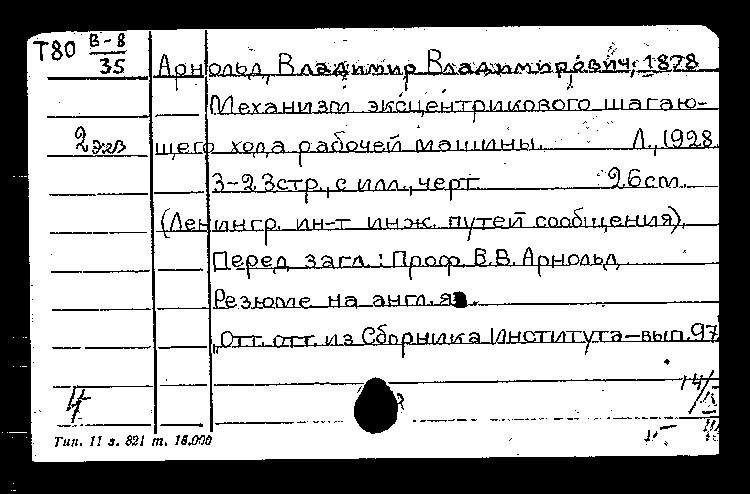 Т80 В-8
35
Арнольд, Владимир Владимирович, 1878
Механизм эксцентрикового шагаю-
2 экз щего хода рабочей машины. Л., 1928
3-23стр., с илл., черт. 26cm.
(Ленингр. ин-т инж. путей сообщения).
Перед загл.: Проф. В.В. Арнольд
Резюме на англ. яз.
"Отт. отт. из Сборника Института-вып. 97
4
Тип. 11 з. 821 т. 18.000